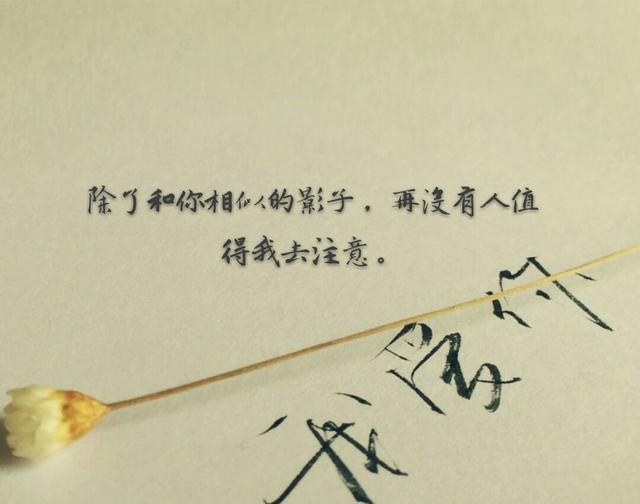 除了和你相似的影子，再沒有人值
得我去注意。
我爱你